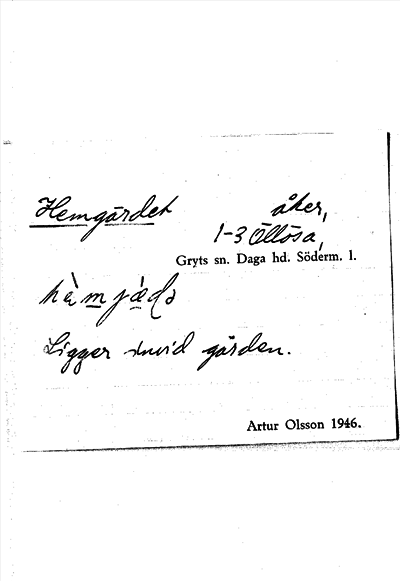 Hemgärdet åker,
1-3 Öllösa,
Gryts sn. Daga hd. Söderm. l.
Ligger invid gården.
Artur Olsson 1946.